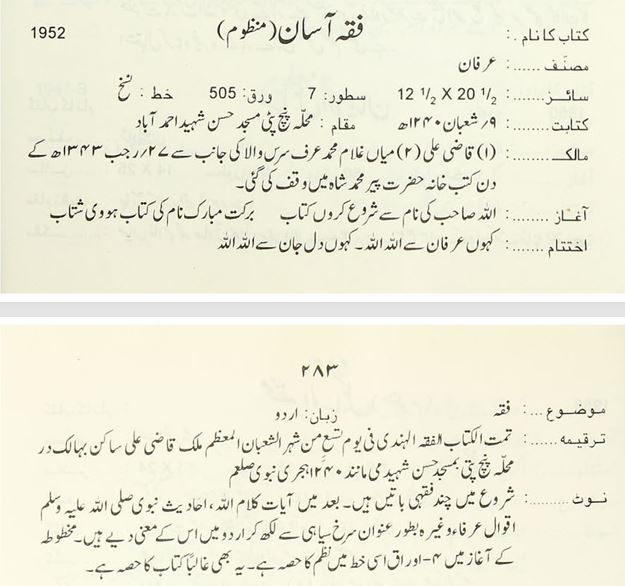 کتاب کا نام .: فقہ آسان (منظوم) 1952
مصنّف ......: عرفان
سائز ......: 12 1/2 X 20 1/2 سطور: 7 ورق: 505 خط: نسخ
کتابت ......: ۹؍شعبان ۱۲۴۰ھ مقام: محلّہ پنچ پٹی مسجد حسن شہید احمد آباد
مالک ......: (۱) قاضی علی (۲) میاں غلام محمد عرف سرس والا کی جانب سے ۲۷؍رجب ۱۳۴۳ھ کے
دن کتب خانہ حضرت پیر محمد شاہ میں وقف کی گئی۔
آغاز ........: اللہ صاحب کی نام سے شروع کروں کتاب برکت مبارک نام کی کتاب ہووی شتاب
اختتام .......: کہوں عرفان سے اللہ اللہ۔ کہوں دل جان سے اللہ اللہ
۲۸۳
موضوع ...: فقہ زبان: اردو
ترقیمہ ......: تمت الکتاب الفقہ الہندی فی یوم تسع من شہر الشعبان المعظم ملک قاضی علی ساکن بہالک در
محلّہ پنچ پتی بمسجد حسن شہید می مانند ۱۲۴۰ ہجری نبوی صلعم
نوٹ .........: شروع میں چند فقہی باتیں ہیں۔ بعد میں آیات کلام اللہ، احادیث نبوی صلی اللہ علیہ وسلم
اقوال عرفاء وغیرہ بطور عنوان سرخ سیاہی سے لکھ کر اردو میں اس کے معنی دیے ہیں۔ مخطوطہ
کے آغاز میں ۴-اوراق اسی خط میں نظم کا حصہ ہے۔ یہ بھی غالباً کتاب کا حصہ ہے۔